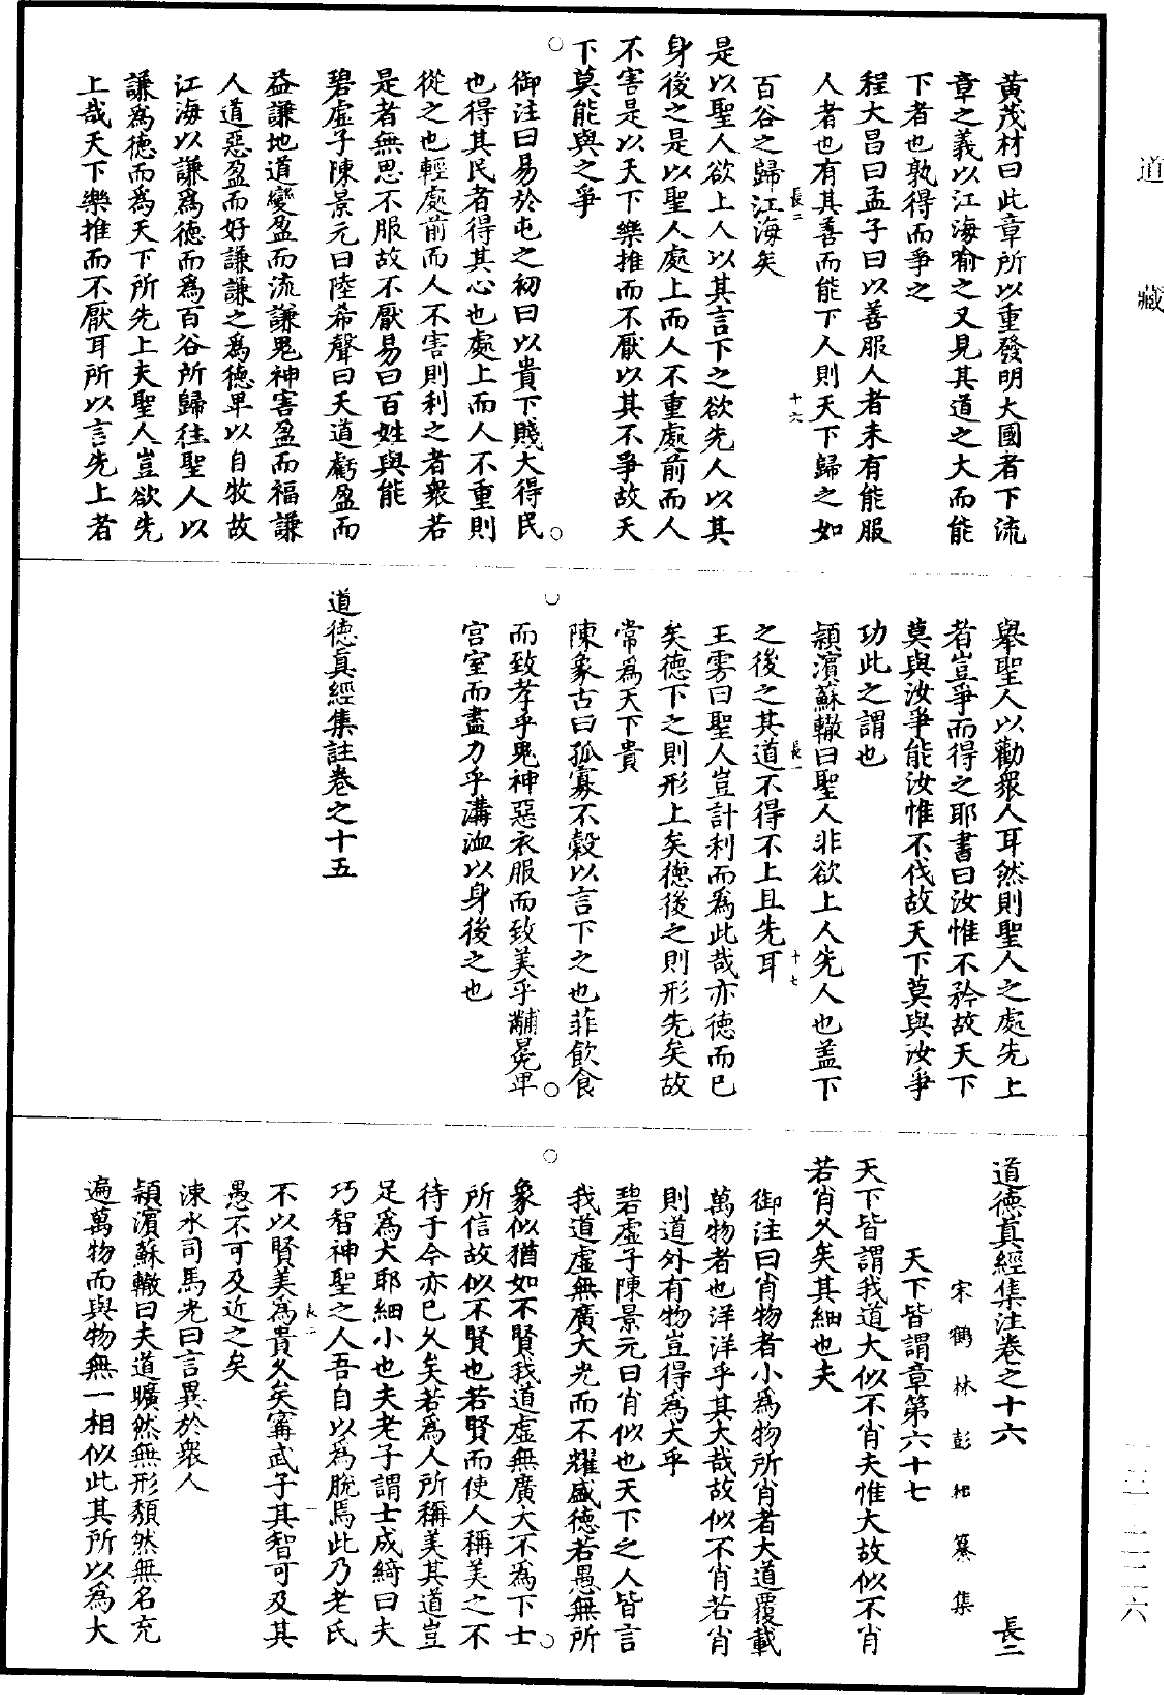 道藏
黃茂材曰此章所以重發明大國者下流
章之義以江海喻之又見其道之大而能
下者也孰得而爭之
程大昌曰孟子曰以善服人者未有能服
人者也有其善而能下人則天下歸之如
百谷之歸江海矣
長二
十六
是以聖人欲上人以其言下之欲先人以其
身後之是以聖人處上而人不重處前而人
不害是以天下樂推而不厭以其不爭故天
下莫能與之爭
御注曰易於屯之初曰以貴下賤大得民
也得其民者得其心也處上而人不重則
從之也輕處前而人不害則利之者衆若
是者無思不服故不厭易曰百姓與能
碧虛子陳景元曰陸希聲曰天道虧盈而
益謙地道變盈而流謙鬼神害盈而福謙
人道惡盈而好謙謙之爲德卑以自牧故
江海以謙爲德而爲百谷所歸往聖人以
謙爲德而爲天下所先上夫聖人豈欲先
上哉天下樂推而不厭耳所以言先上者
舉聖人以勸衆人耳然則聖人之處先上
者豈爭而得之耶書曰汝惟不矜故天下
莫與汝爭能汝惟不伐故天下莫與汝爭
功此之謂也
潁濱蘇轍曰聖人非欲上人先人也蓋下
之後之其道不得不上且先耳
長一
十七
王雱曰聖人豈計利而爲此哉亦德而已
矣德下之則形上矣德後之則形先矣故
常爲天下貴
陳象古曰孤寡不穀以言下之也菲飲食
而致孝乎鬼神惡衣服而致美乎黼冕卑
宮室而盡力乎溝洫以身後之也
道德真經集註卷之十五
道德真經集注卷之十六
長二
宋鶴林彭耜纂集
天下皆謂章第六十七
天下皆謂我道大似不肖夫惟大故似不肖
若肖久矣其細也夫
御注曰肖物者小爲物所肖者大道覆載
萬物者也洋洋乎其大哉故似不肖若肖
則道外有物豈得爲大乎
碧虛子陳景元曰肖似也天下之人皆言
我道虛無廣大光而不耀盛德若愚無所
象似猶如不賢我道虛無廣大不爲下士
所信故似不賢也若賢而使人稱美之不
待于今亦已久矣若爲人所稱美其道豈
足爲大耶細小也夫老子謂士成綺曰夫
巧智神聖之人吾自以爲脫焉此乃老氏
不以賢美爲貴久矣甯武子其智可及其
愚不可及近之矣
長二
一
涑水司馬光曰言異於衆人
潁濱蘇轍曰夫道曠然無形頹然無名充
遍萬物而與物無一相似此其所以爲大